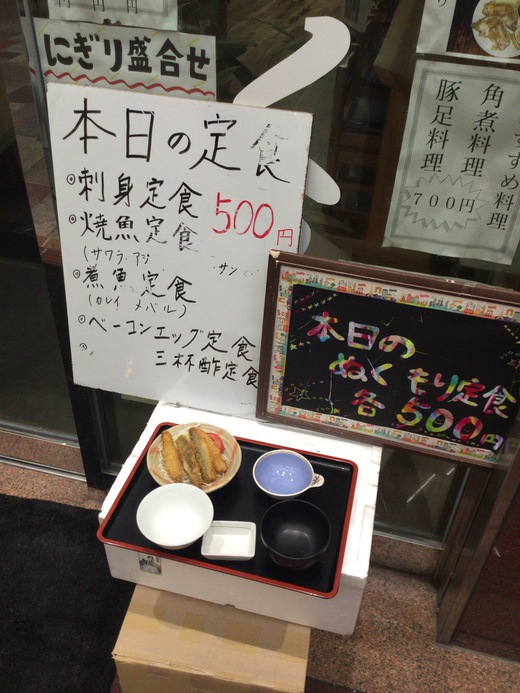 にぎり盛合せ
本日の定食
◎刺身定食 500円
◎焼魚定食
(サワラ.アジ サン
◎煮魚定食
(カレイ メバル)
◎ベーコンエッグ定食
三杯酢定食
本日の
ぬくもり定食
各500円
すすめ料理
角煮料理
豚足料理
700円